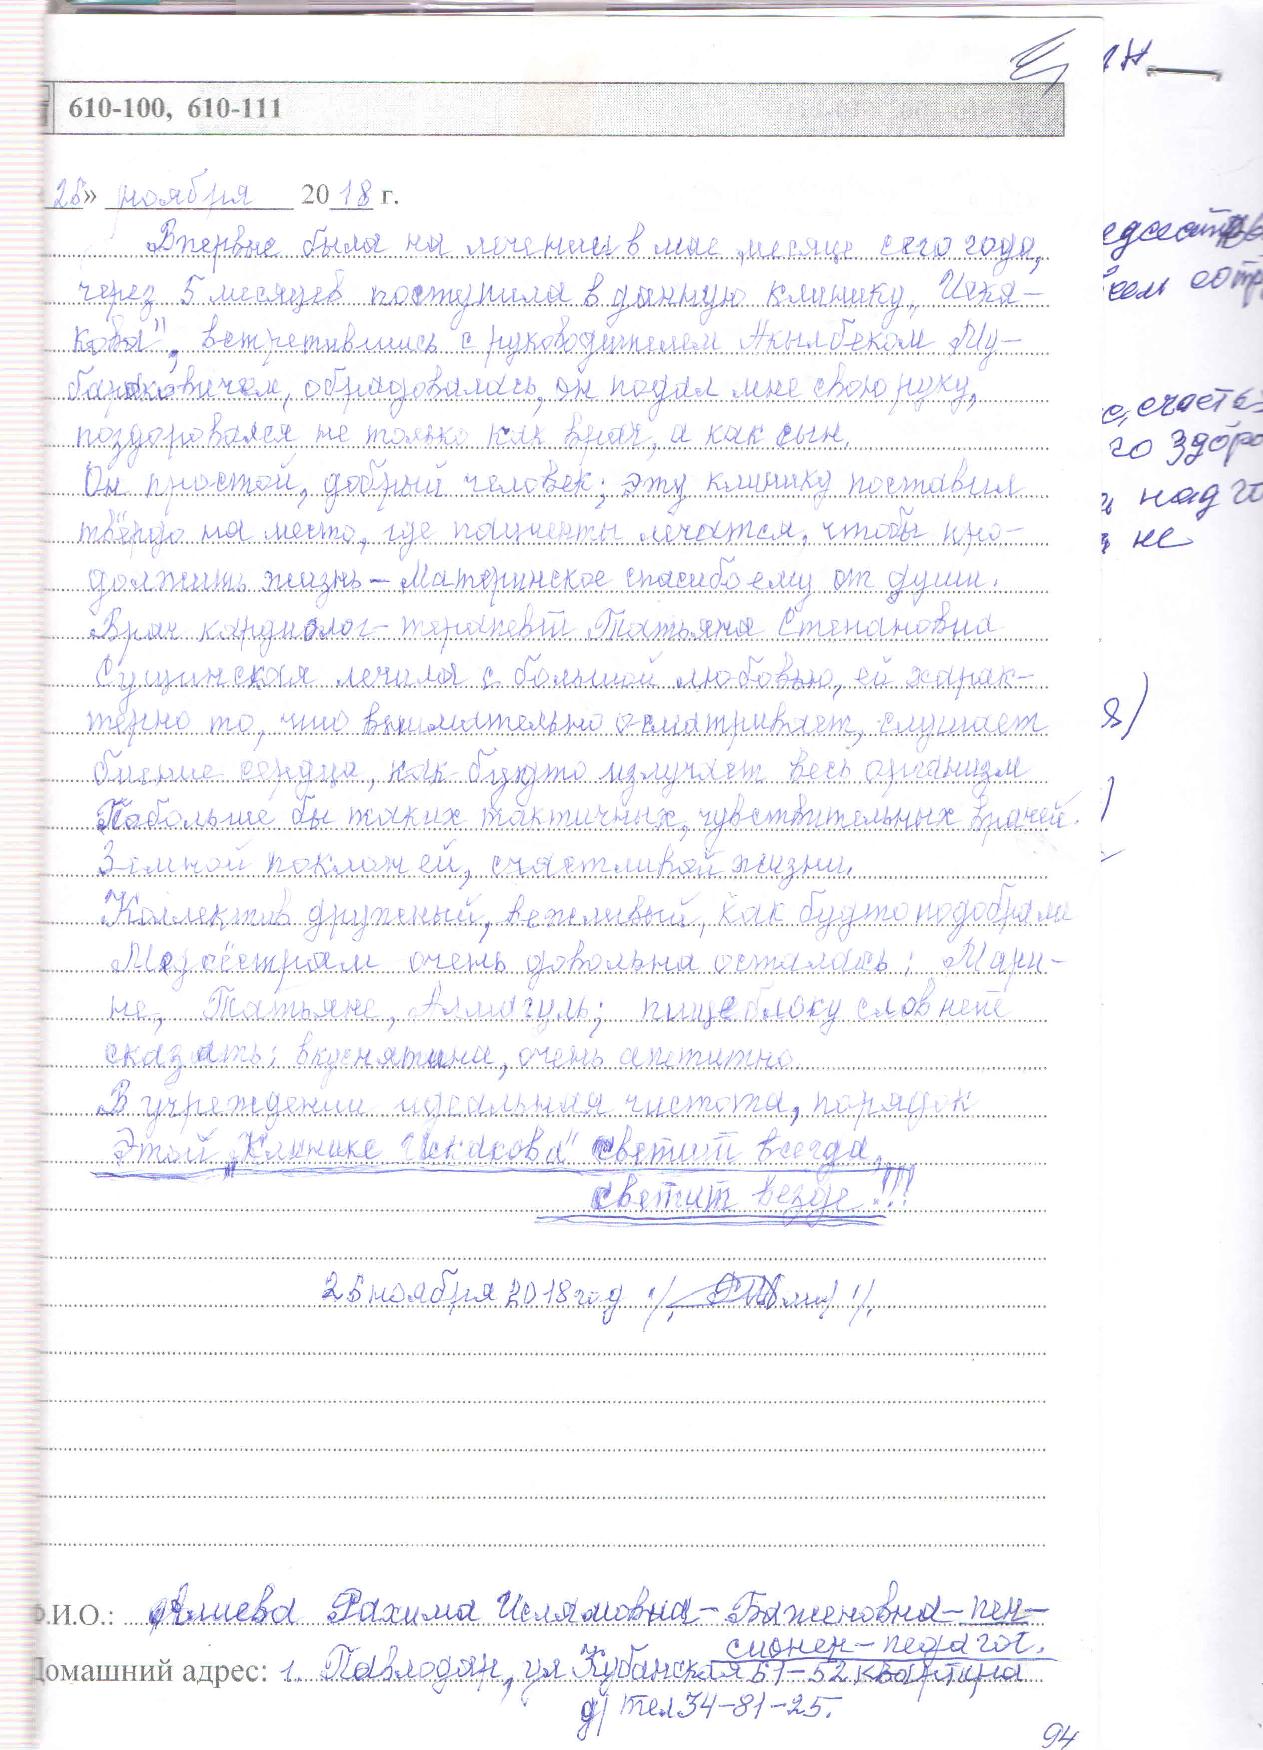 610-100, 610-111
26» ноября 2018 г.
Впервые была на лечении в мае месяце сего года,
через 5 месяцев поступила в данную клинику „Иска-
кова", встретившись с руководителем Акылбеком Му-
бараковичем, обрадовалась, он подал мне свою руку,
поздоровался не только как врач, а как сын.
Он простой, добрый человек; эту клинику поставил
твёрдо на место, где пациенты лечатся, чтобы про-
должить жизнь – Материнское спасибо ему от души.
Врач кардиолог-терапевт Татьяна Степановна
Сущинская лечила с большой любовью, ей харак-
терно то, что внимательно осматривает, слушает
биение сердца, как будто излучает весь организм
Побольше бы таких тактичных, чувствительных врачей.
Земной поклон ей, счастливой жизни.
Коллектив дружный, вежливый, как будто подобрали
Медсёстрам очень довольна осталась: Мари-
не, Татьяне, Алмагуль; пищеблоку слов нет
сказать: вкуснятина, очень апетитно.
В учреждении идеальная чистота, порядок
Этой „Клинике Искакова" светит всегда,
светит везде!!!
26 ноября 2018 год
Ф.И.О.: Алиева Рахима Ислямовна – Баженовна – пен-
сионен – педагог.
Домашний адрес: г. Павлодар, ул Кубанская 61 – 52 квартира
д/тел 34-81-25.
94
ин
сем сотр
с, счасть
го здоро
над го
не
я)